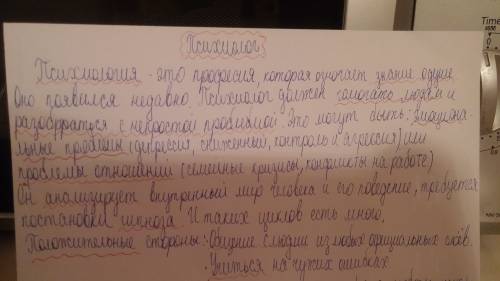 Психолог.
Психиология - это професия, которая означает знание о душе.
Оно появился недавно. Психолог должен помогать людям и
разобраться с непростой проблемой. Это могут быть: Эмоциона-
льные проблемы (дипрессия, сниженный, контроль и агрессия) или
проблемы отношении (семейные кризисы, конфликты на работе)
Он анализирует внутренный мир человека и его поведение, требуется
постановки гипноза. И таких циклов есть много.
Положительные стороны: Общение с людми из любых официальных слоёв.
· Учиться на чужих ошибках.